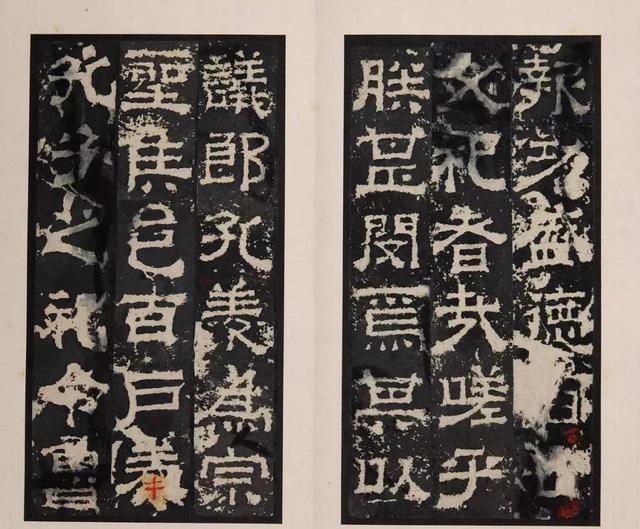 報功盛德
必祀者哉嗟乎
朕甚閔焉其以
議郎孔羡為宗
聖侯邑百戶奉
孔子之祀令魯